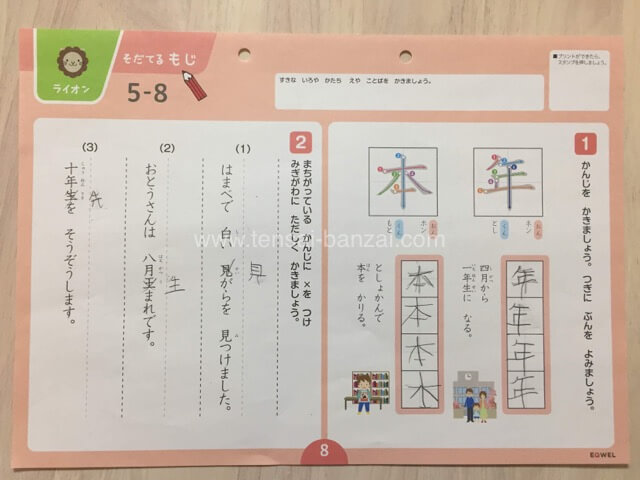 ライオン
そだてる もじ
5-8
すきな いろや かたち えや ことばを かきましょう。
■プリントができたら、
スタンプを押しましょう。
1
かんじを かきましょう。つぎに ぶんを よみましょう。
年
おん
ネン
くん
とし
年
年
年
年
四月から
一年生に なる。
本
おん
ホン
くん
もと
本
本
本
本
としょかんで
本を かりる。
2
まちがっている かんじに ×を つけ
みぎがわに ただしく かきましょう。
(1)
はまべで 白い 見がらを 見つけました。
貝
(2)
おとうさんは 八月王まれです。
生
(3)
十年生を そうぞうします。
先
www.tensai-banzai.com
8
EQWEL